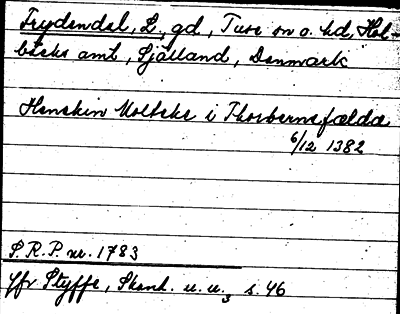 Frydendal, L, gd, Tuse sn o. hd, Hol-
bæks amt, Själland, Danmark
Henekin Molteke i Thorbernsfældæ
6/12 1382
S.R.P. nr. 1783
Jfr Styffe, Skand. u. u.3 s. 46